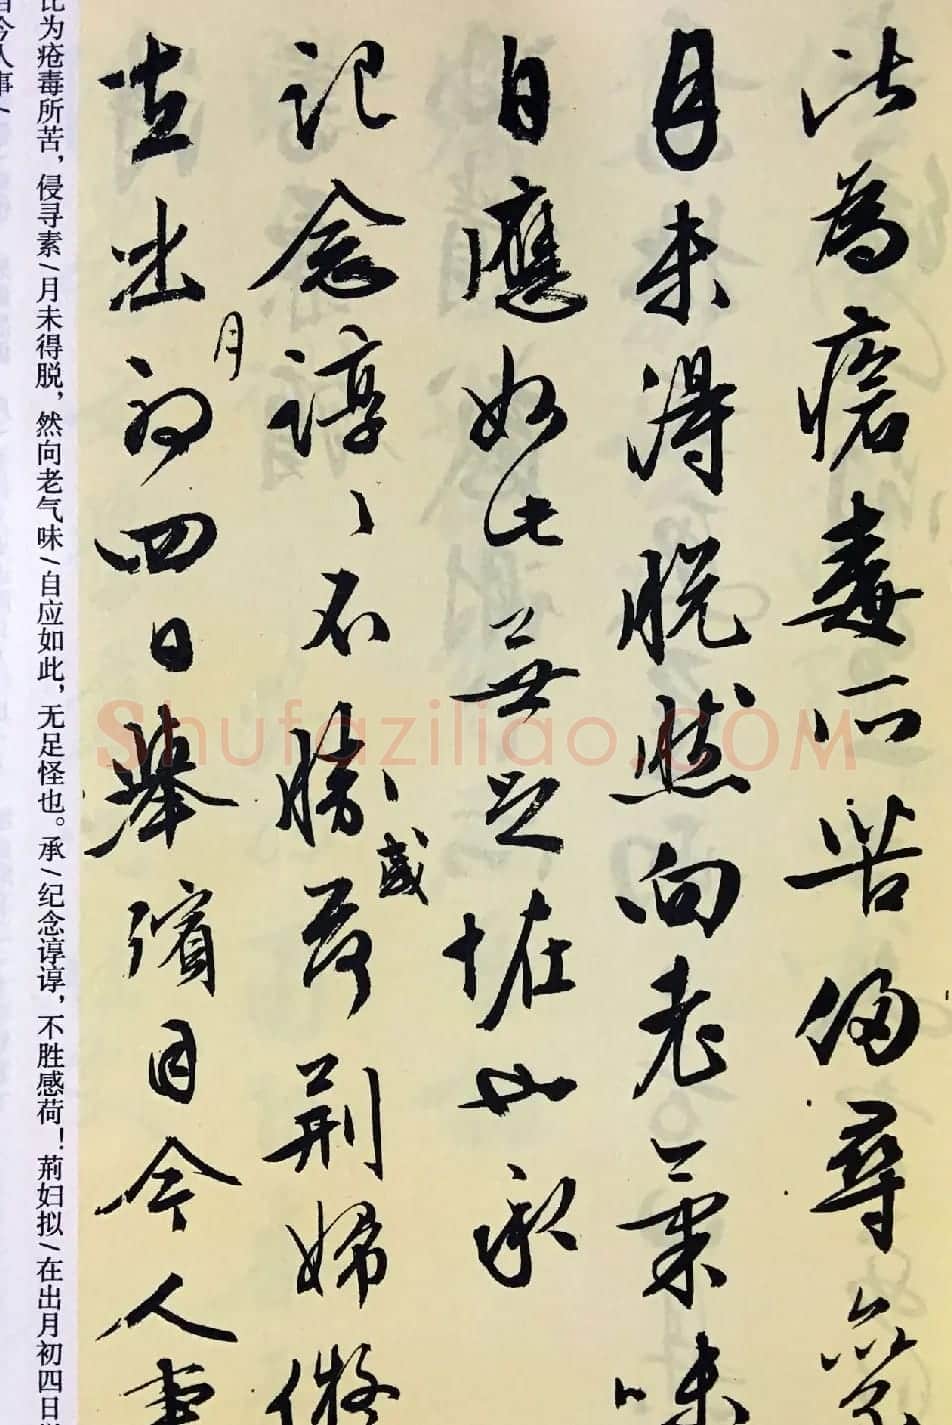 比為瘡毒所苦侵尋
月未得脫然向老氣味
自應如此無足怪也承
記念諄〻不勝感荷荊婦擬
在出月初四日舉殯目今人事
比为疮毒所苦，侵寻素/月未得脱，然向老气味/自应如此，无足怪也。承/纪念谆谆，不胜感荷！荊妇拟/在出月初四日
目今人事/
Shufaziliao.COM